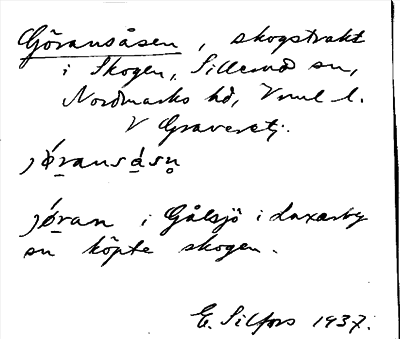 Göransåsen, skogstrakt
i Skogen, Sillerud sn,
Nordmarks hd, Vrml l.
V Graversetj.
jǿransåsn̥
jǿran i Gålsjö i Laxarby
sn köpte skogen.
E. Silfors 1937.